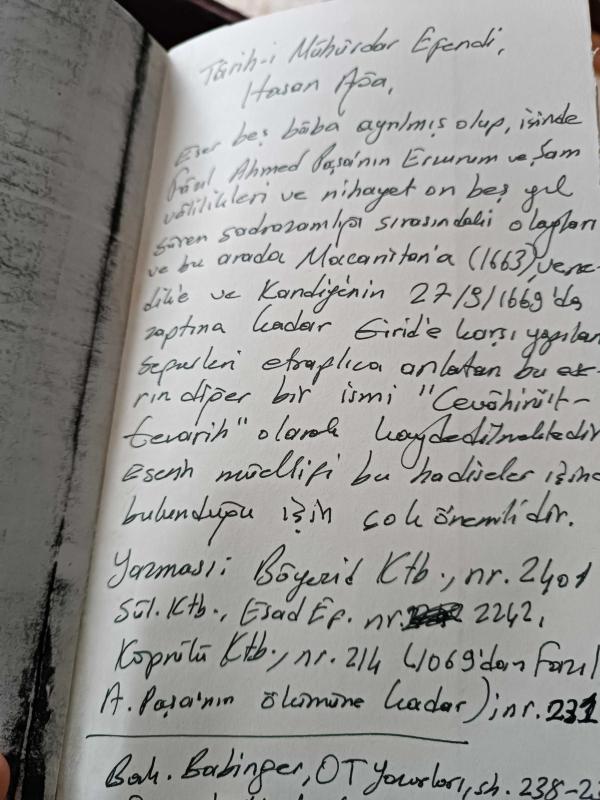 Târih-i Mühürdar Efendi,
Hasan Ağa,
Eser beş bâba ayrılmış olup, içinde
Fâzıl Ahmed Paşa'nın Erzurum ve Şam
vâlilikleri ve nihayet on beş yıl
süren sadrazamlığı sırasındaki olayları
ve bu arada Macaristan'a (1663) vene-
dik'e ve Kandiye'nin 27/9/1669'da
zaptına kadar Girid'e karşı yapılan
seferleri etraflıca anlatan bu ese-
rin diğer bir ismi "Cevâhirü't-
tevarih" olarak kaydedilmektedir
Eserin müellifi bu hadiseler içinde
bulunduğu için çok önemlidir.
Yazması: Bâyezid Ktb., nr. 2401
Sül. Ktb., Esad Ef. nr. 2242,
Köprülü Ktb., nr. 214 (1069'dan Fazıl
A. Paşa'nın ölümüne kadar); nr. 231
Bak. Babinger, OT Yazarları, sh. 238-23